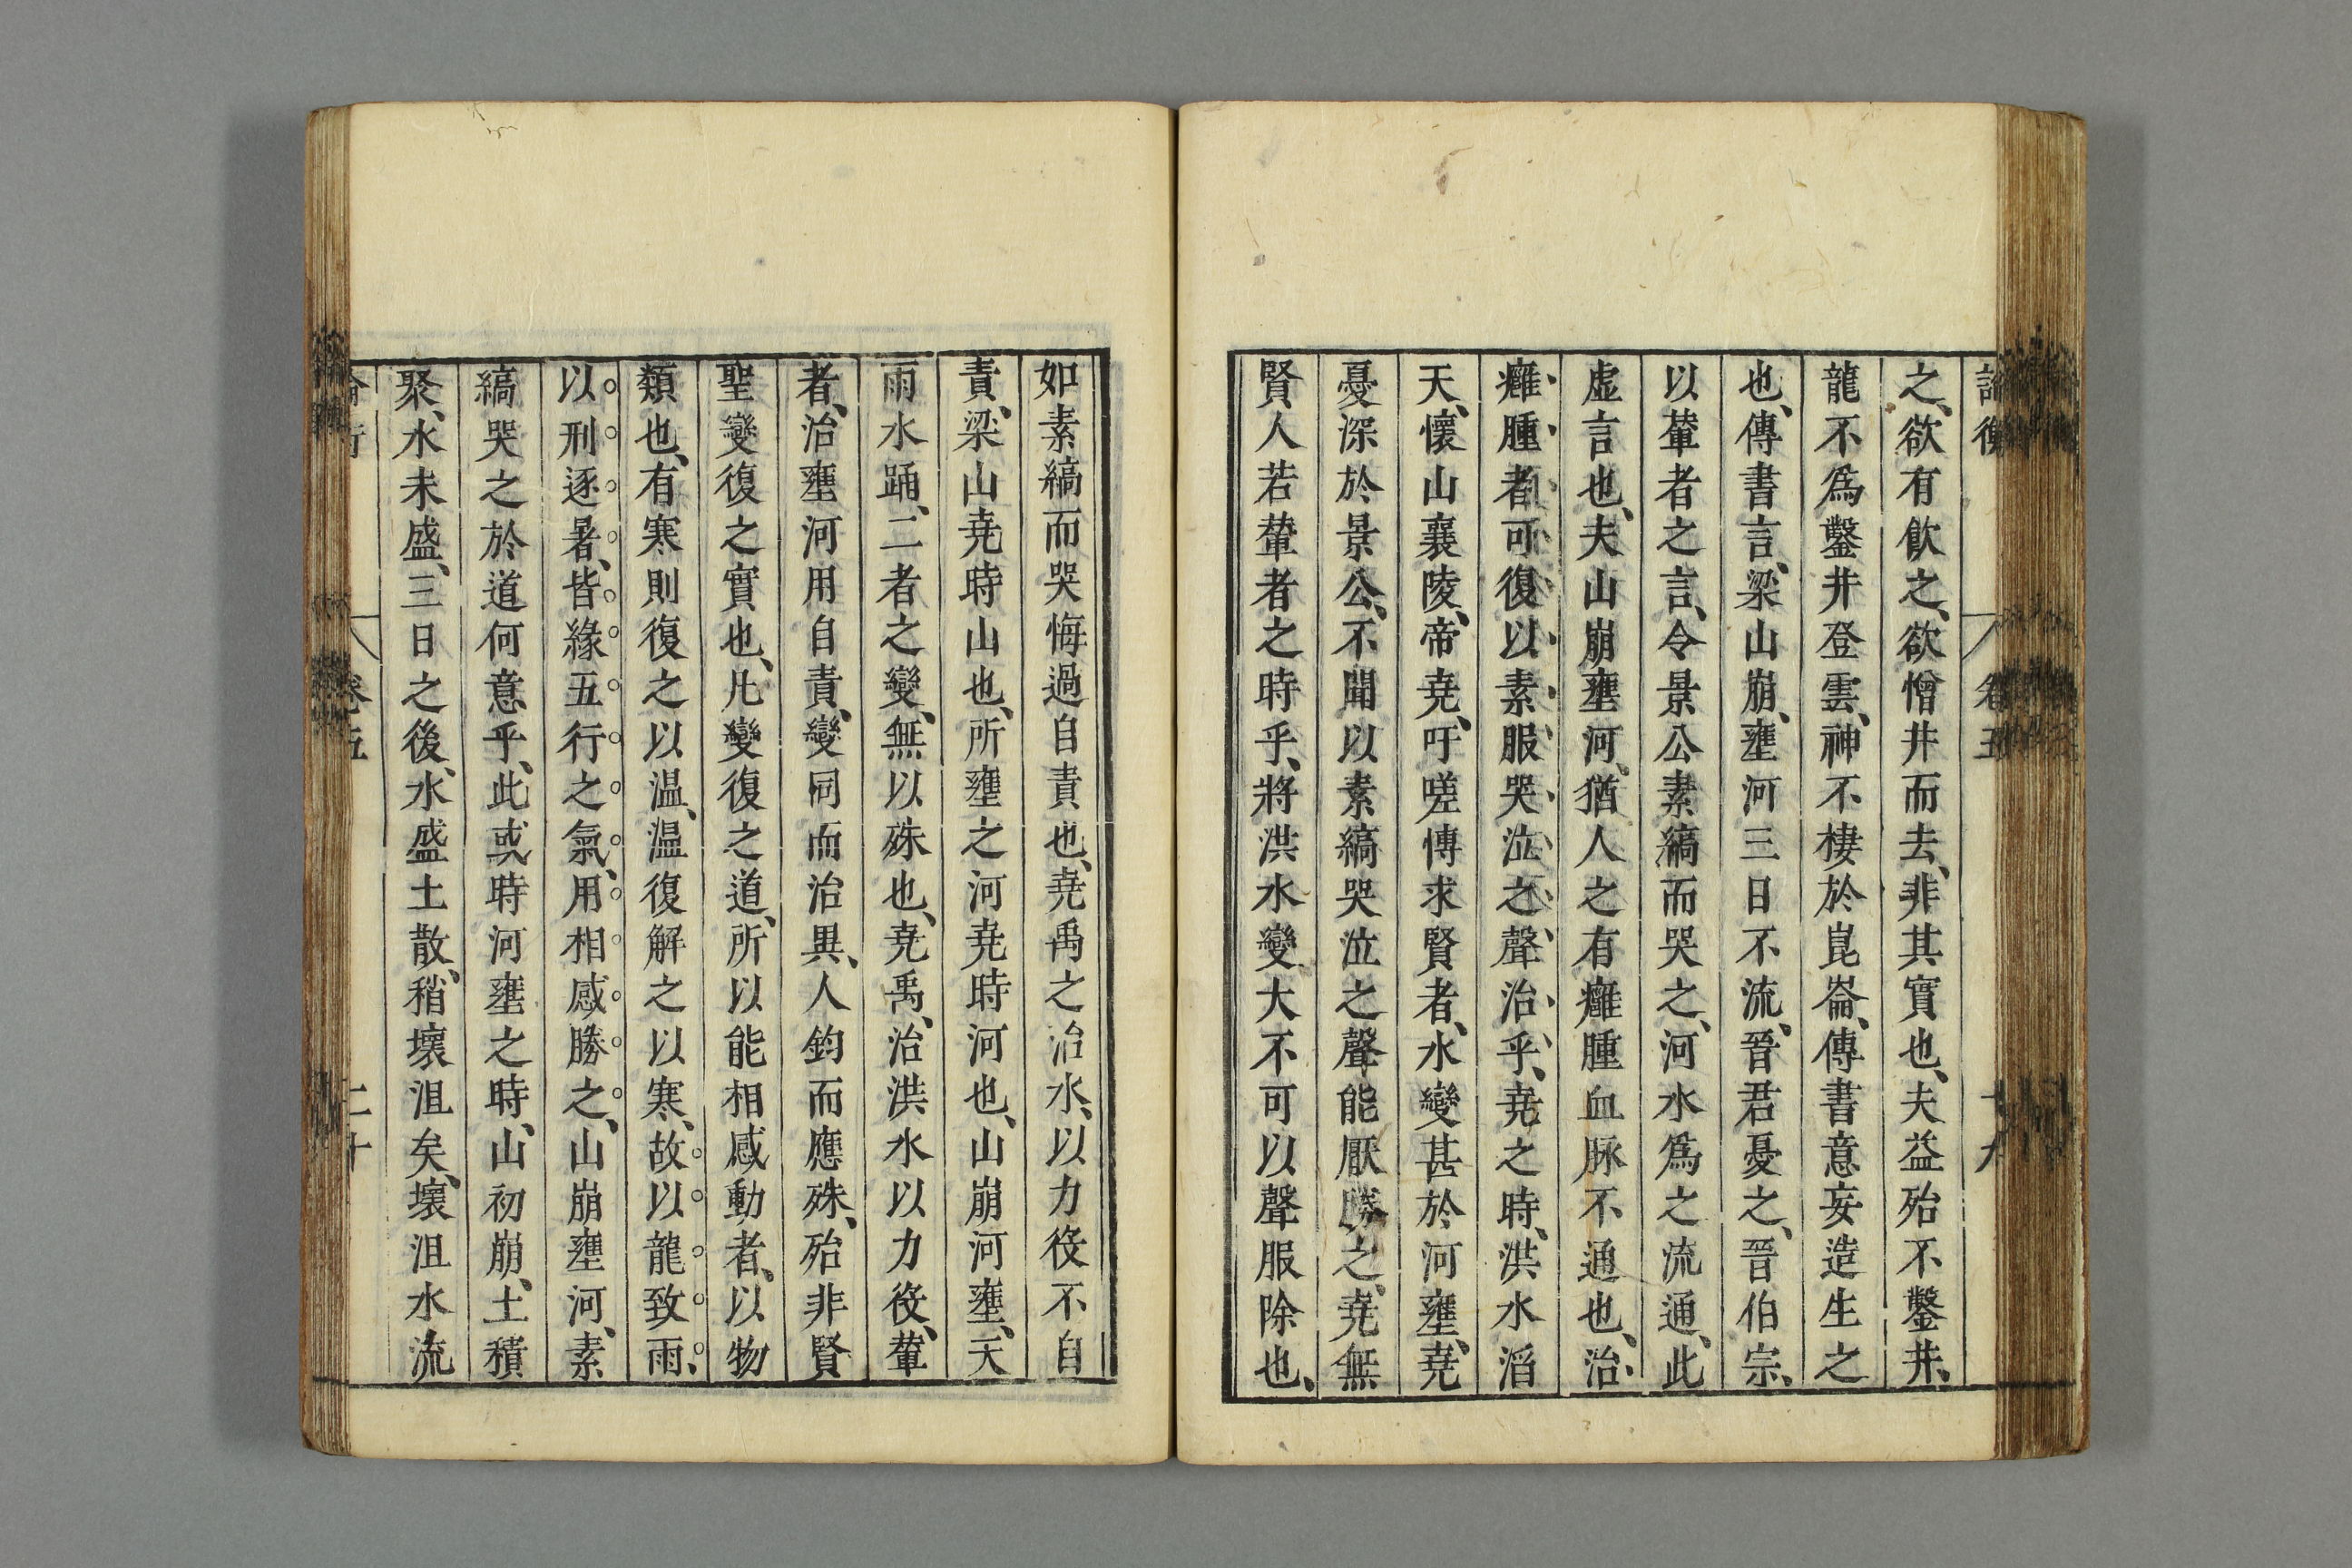 論衡 卷五 十九
之、欲有飮之、欲憎井而去、非其實也、夫益殆不鑿井、
龍不爲鑿井登雲、神不棲於崑崙、傳書意妄造生之
也、傳書言、梁山崩、壅河三日不流、晉君憂之、晉伯宗、
以輦者之言、令景公素縞而哭之、河水爲之流通、此
虛言也、夫山崩壅河、猶人之有癰腫血脉不通也、治、
癰腫者可復以素服哭泣之聲治乎、堯之時、洪水滔
天、懷山襄陵、帝堯、吁嗟博求賢者、水變甚於河壅、堯
憂深於景公、不聞以素縞哭泣之聲能厭勝之、堯無
賢人若輦者之時乎、將洪水變大不可以聲服除也、
如素縞而哭悔過自責也、堯禹之治水、以力役不自
責、梁山堯時山也、所壅之河堯時河也、山崩河壅、天
雨水踊、二者之變、無以殊也、堯禹、治洪水以力役、輦
者、治壅河用自責、變同而治異、人鈞而應殊、殆非賢
聖變復之實也、凡變復之道、所以能相感動者、以物
類也、有寒則復之以温、温復解之以寒、故以龍致雨、
以刑逐暑、皆緣五行之氣、用相感勝之、山崩壅河、素
縞哭之於道何意乎、此或時河壅之時、山初崩、土積
聚、水未盛、三日之後、水盛土散、稍壞沮矣、壞沮水流
論衡 卷五 二十